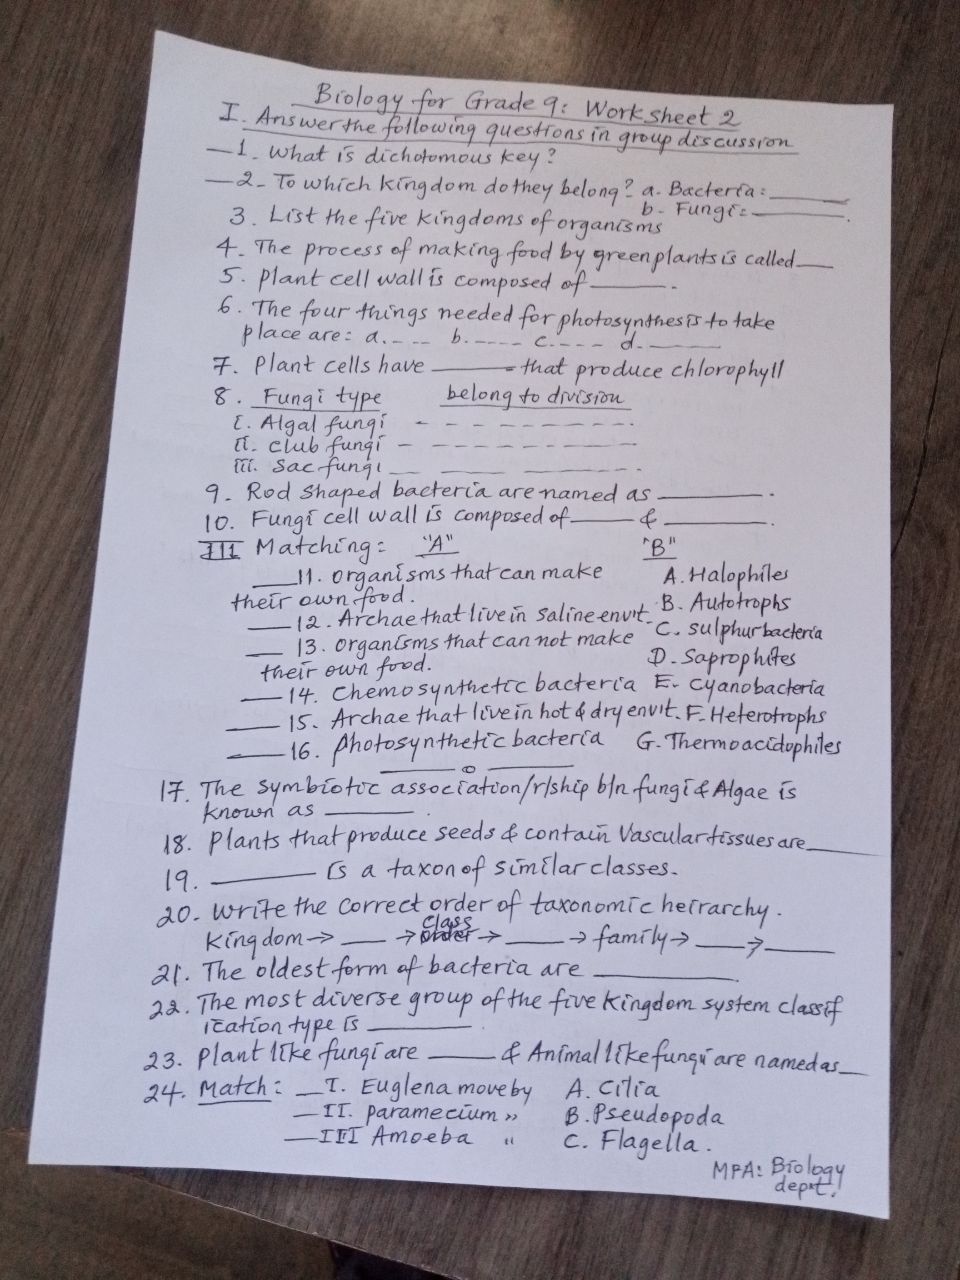 Biology for Grade 9: Worksheet 2
I. Answer the following questions in group discussion
—1. What is dichotomous key?
—2- To which kingdom do they belong? a. Bacteria: ______
b- Fungi: ______.
3. List the five kingdoms of organisms
4. The process of making food by green plants is called ___
5. Plant cell wall is composed of ______.
6. The four things needed for photosynthesis to take
place are: a. _ _ _ b. _ _ _ c. _ _ _ d. ______
7. Plant cells have ______ that produce chlorophyll
8. Fungi type belong to division
I. Algal fungi - - - - - - - -.
II. club fungi - - - - - - - -
III. Sac fungi __ ___ _ _ _ _.
9. Rod shaped bacteria are named as ______.
10. Fungi cell wall is composed of ____ & ______.
III Matching: "A" "B"
___11. organisms that can make A. Halophiles
their own food. B. Autotrophs
___12. Archae that live in saline envit. C. sulphur bacteria
___13. organisms that can not make D. Saprophites
their own food.
___14. Chemosynthetic bacteria E. Cyanobacteria
___15. Archae that live in hot & dry envit. F. Heterotrophs
___16. photosynthetic bacteria G. Thermoacidophiles
17. The symbiotic association/r/ship b/n fungi & Algae is
known as ______.
18. Plants that produce seeds & contain Vascular tissues are ____
19. ______ is a taxon of similar classes.
20. Write the correct order of taxonomic heirarchy.
Kingdom → ___ → class order → ____ → family → ___ → ____
21. The oldest form of bacteria are ________
22. The most diverse group of the five kingdom system classif
ication type is ______.
23. Plant like fungi are ____ & Animal like fungi are named as __
24. Match: __I. Euglena move by A. Cilia
__II. paramecium " B. Pseudopoda
__III Amoeba " C. Flagella.
MPA: Biology
dep't.